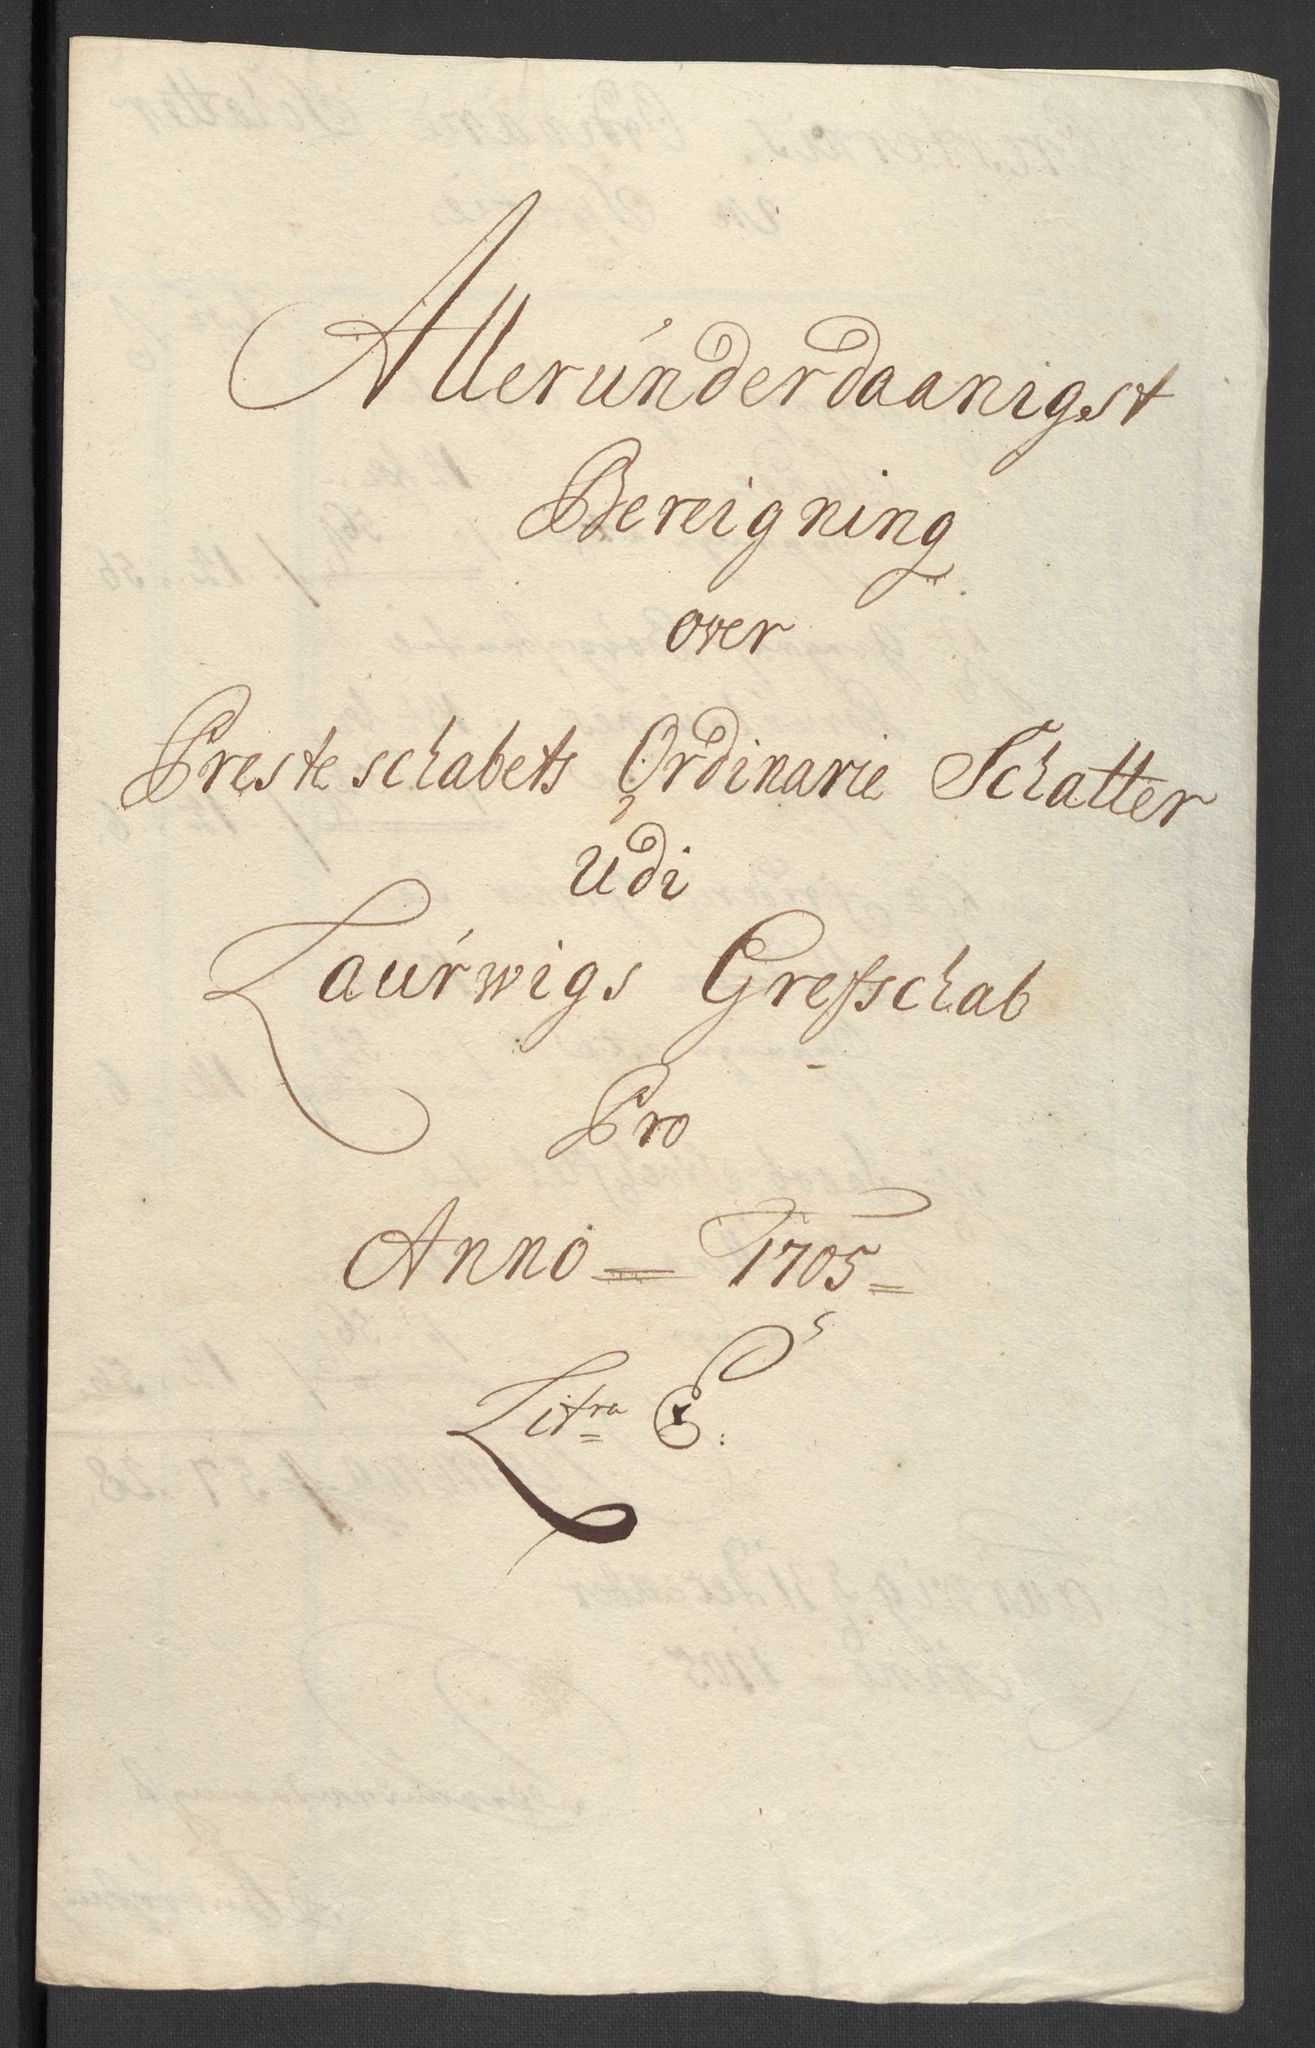 Allerúnderdaanigst
Bereigning
over
Presteschabets Ordinarie Schatter
Udi
Laúrwigs Grefschab
Pro
Anno 1705
Litra E: